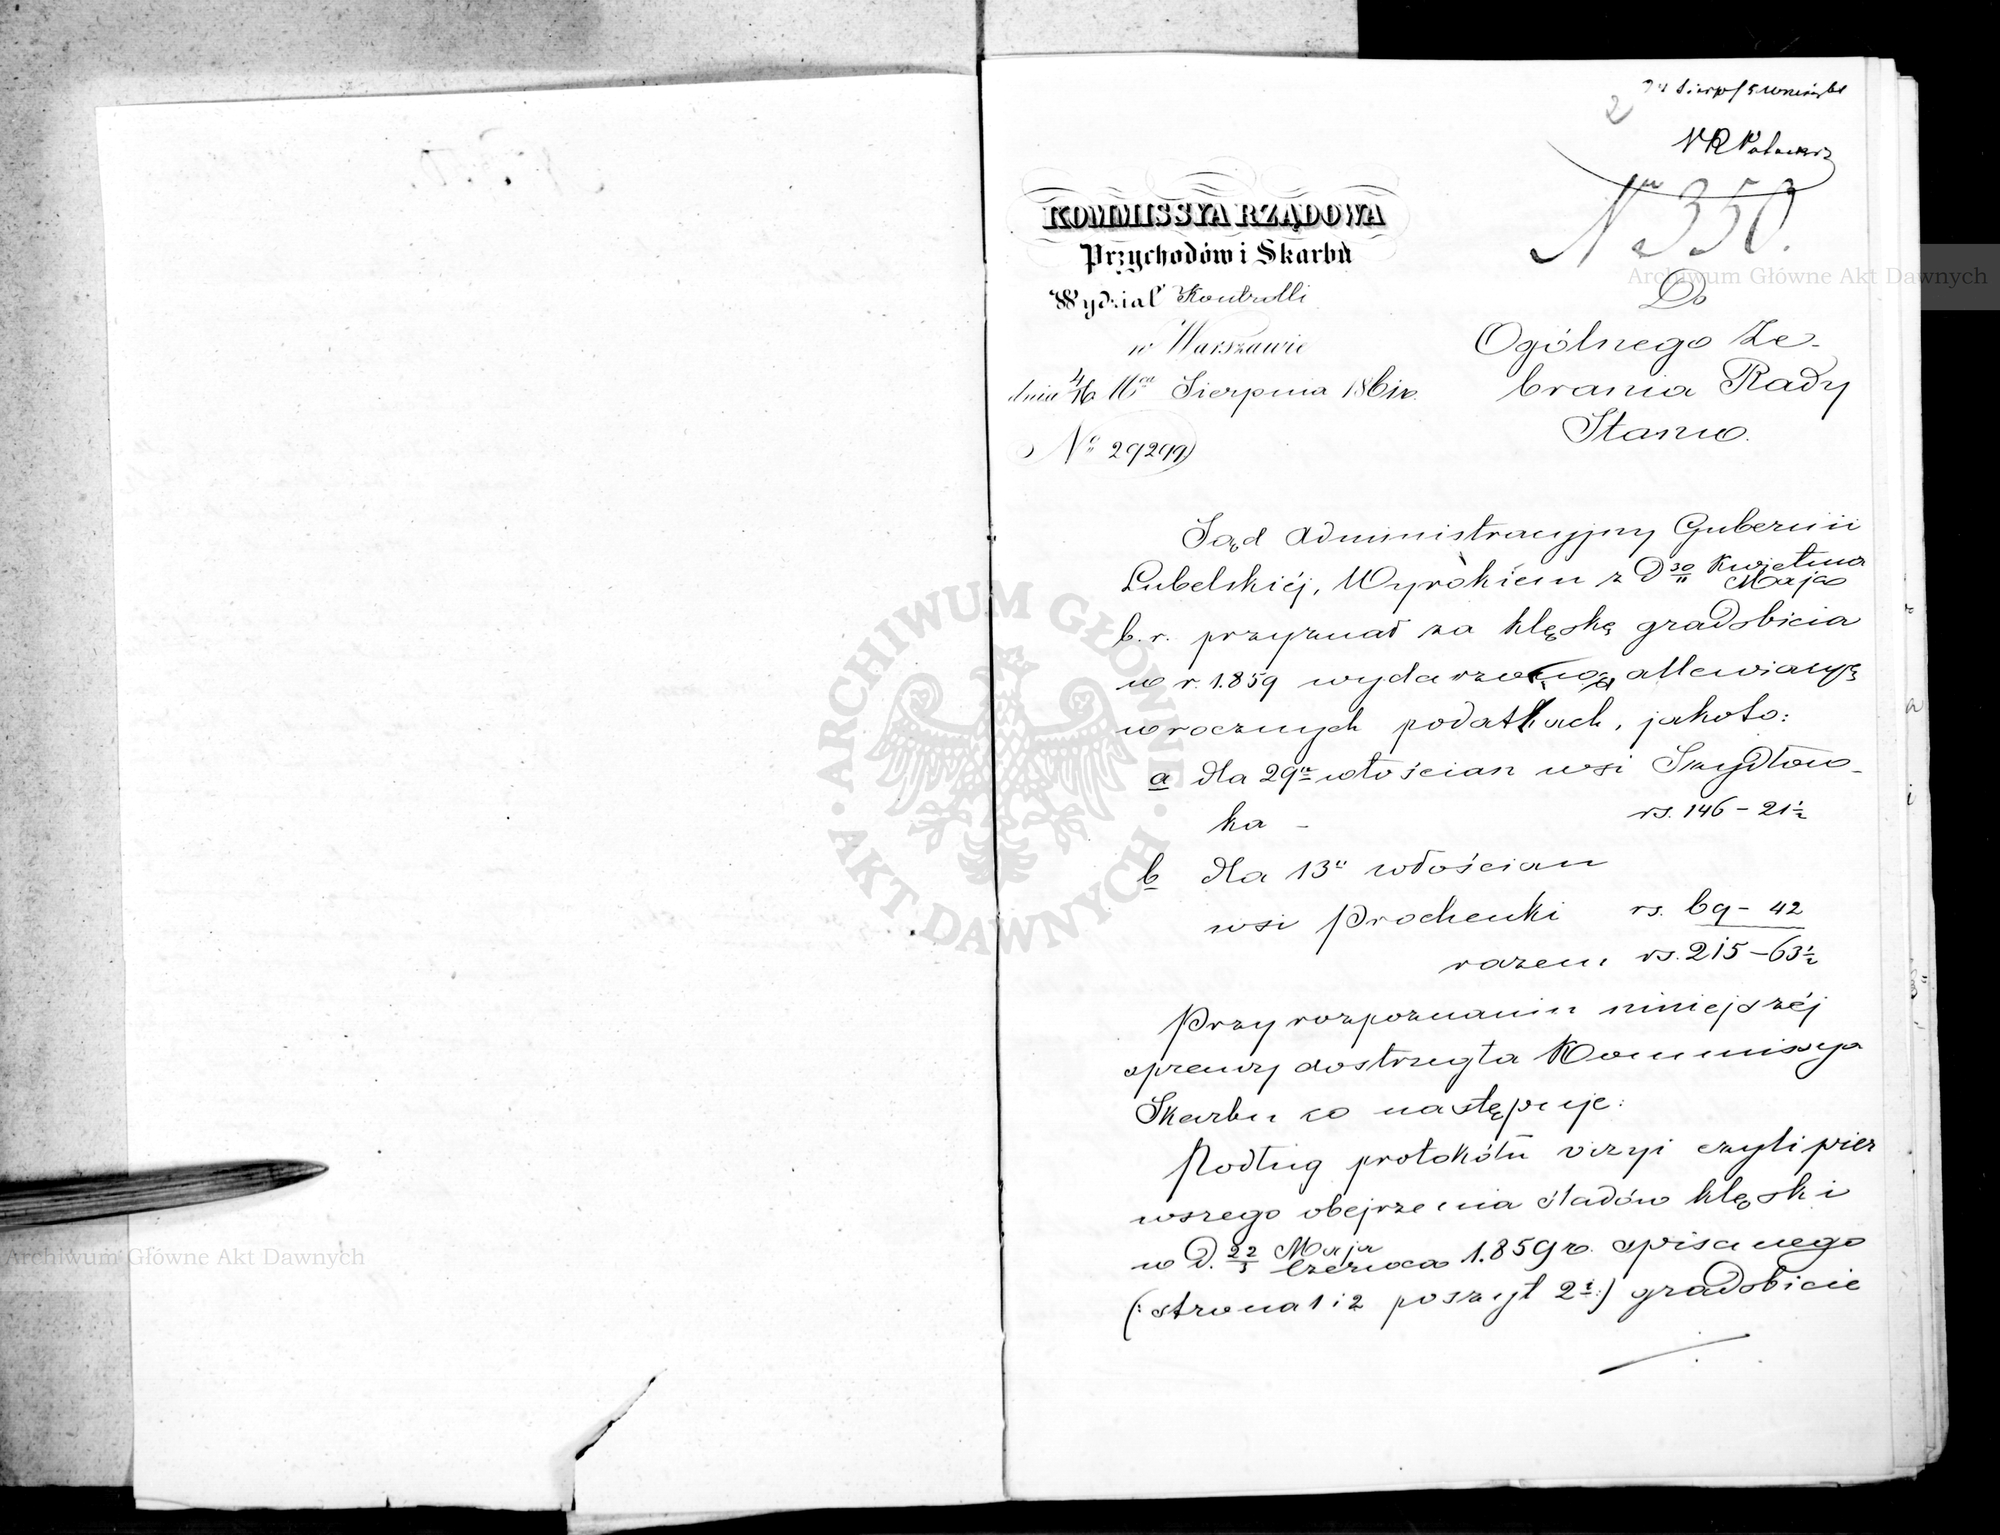 2
Nr 350.
KOMMISSYA RZĄDOWA
Przychodów i Skarbu
Wydział Kontrolli
w Warszawie
dnia 4/16 Mca Sierpnia 1861 r.
No 29299
Do
Ogólnego Ze-
brania Rady
Stanu.
Sąd Administracyjny Gubernii
Lubelskiéj, Wyrokiem z D 30/11 Kwietnia/Maja
b.r. przyznał za klęskę gradobicia
w r. 1859 allewiacyę
w rocznych podatkach, jakoto:
a dla 29u włościan wsi Szydłow-
ka - rs. 146 - 21 1/2
b dla 13u włościan
wsi Prochenki rs. 69 - 42
razem rs. 215 - 63 1/2
Przy rozpoznaniu niniejszéj
sprawy dostrzegła Kommissya
Skarbu co następuje:
Podług protokółu wizyi czyli pier
wszego obejrzenia śladów klęski
w D. 22/3 Maja/Czerwca 1859 r. spisanego
(: strona 1 i 2 poszyt 2i :) gradobicie
Archiwum Główne Akt Dawnych
ARCHIWUM GŁÓWNE · AKT DAWNYCH ·
Archiwum Główne Akt Dawnych